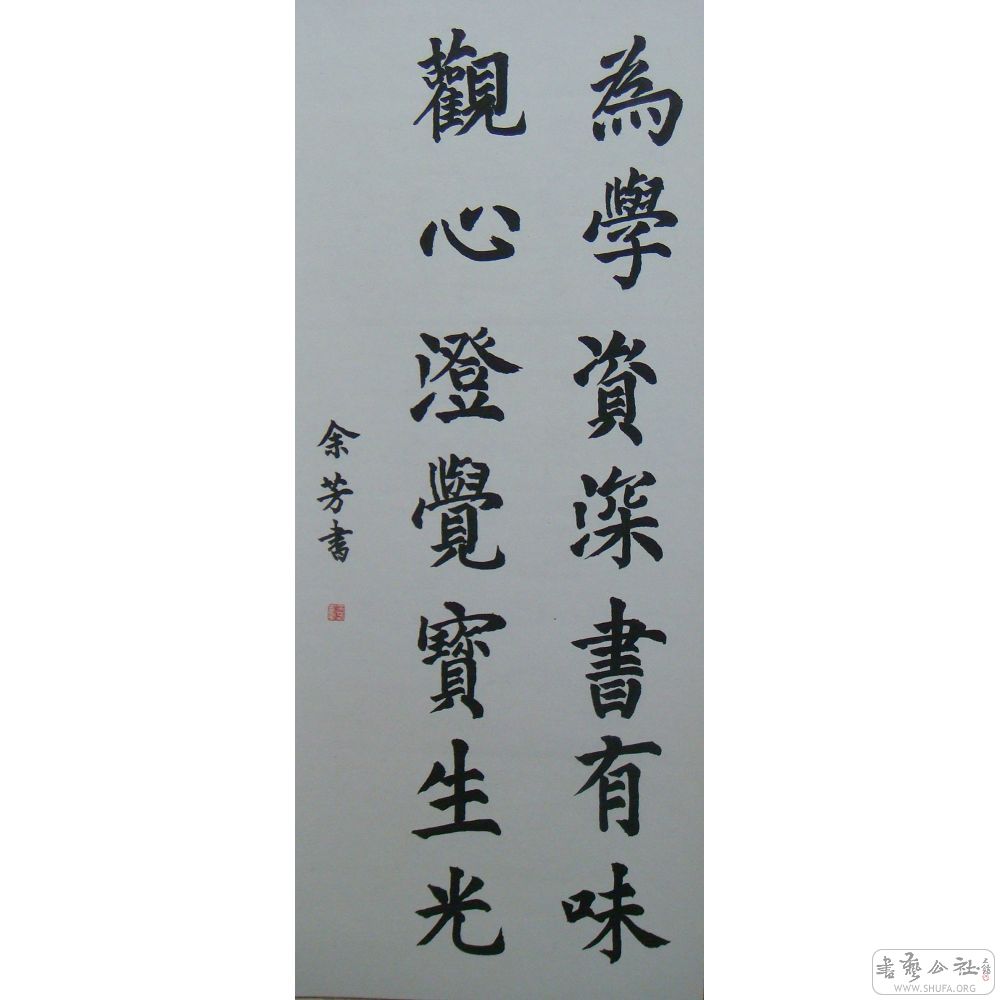 為學資深書有味
觀心澄覺寶生光
余芳書
書藝公社
WWW.SHUFA.ORG